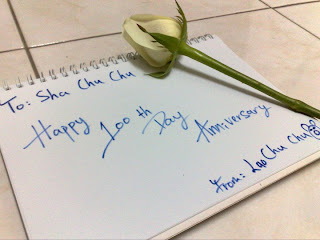 To: Sha Chu Chu
Happy 100th Day Anniversary
From: Lao Chu Chu